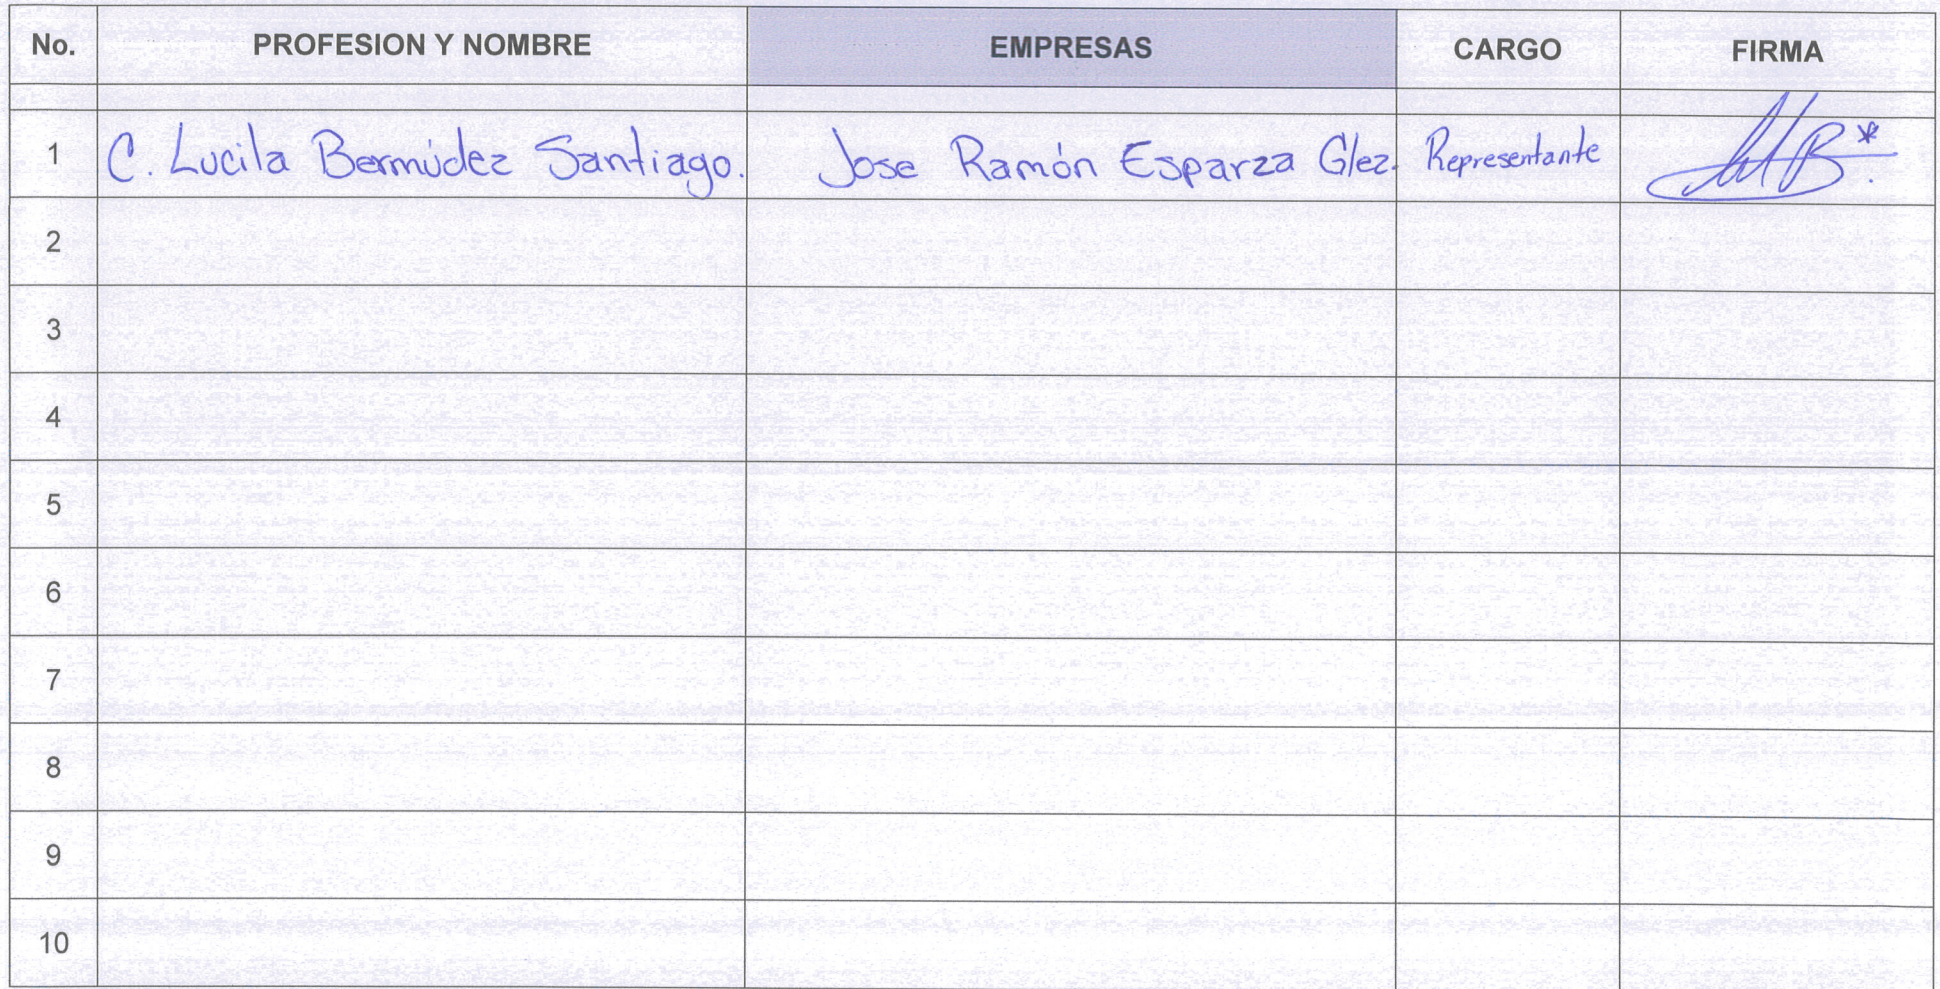 No. PROFESION Y NOMBRE EMPRESAS CARGO FIRMA
1 C. Lucila Bermúdez Santiago. Jose Ramón Esparza Glez. Representante
2
3
4
5
6
7
8
9
10